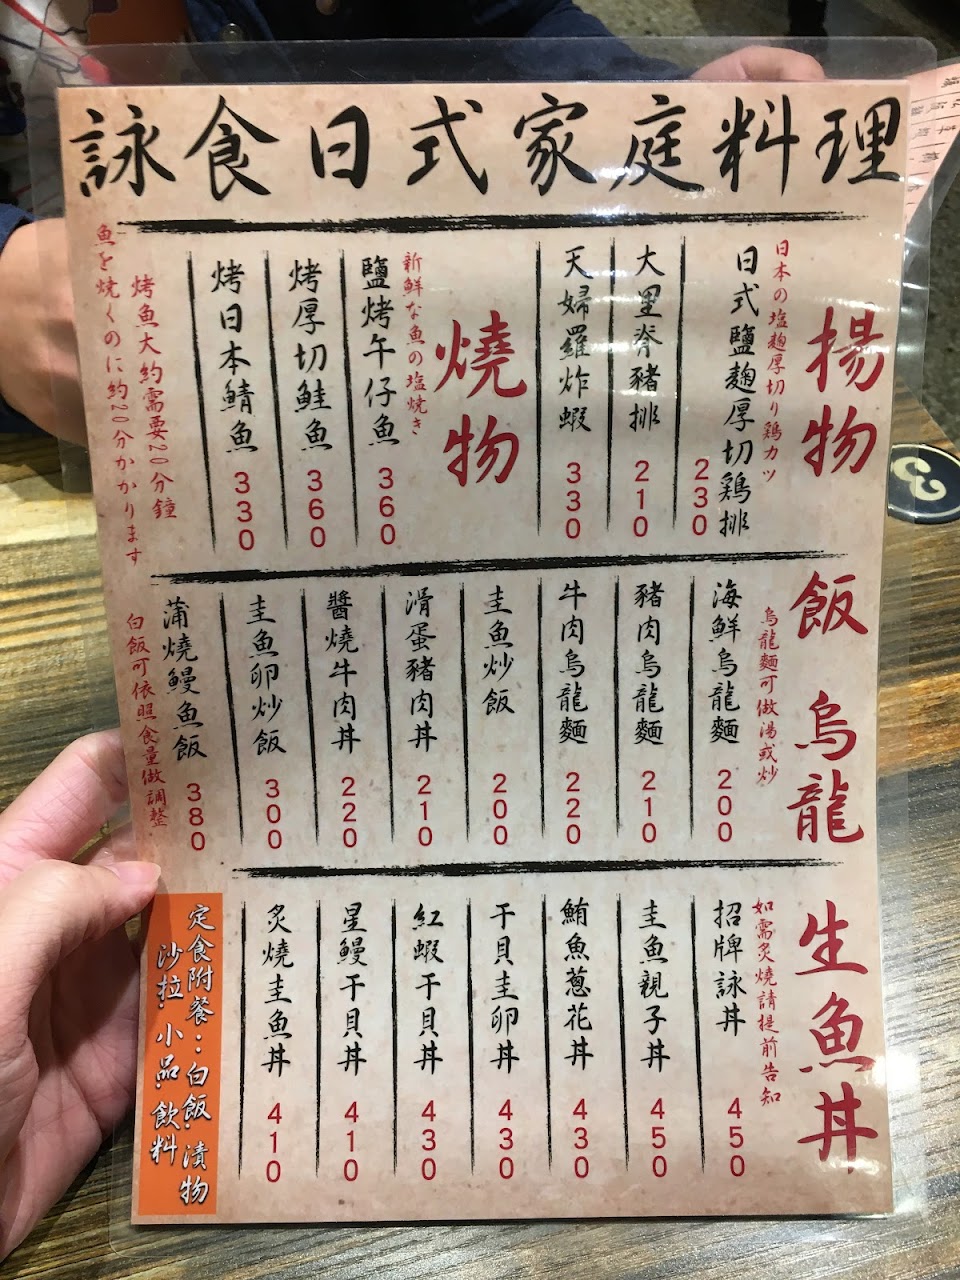 詠食日式家庭料理
揚物
日本の塩麹厚切り鶏カツ
日式鹽麴厚切鶏排 230
大里脊豬排 210
天婦羅炸蝦 330
燒物
新鮮な魚の塩焼き
鹽烤午仔魚 360
烤厚切鮭魚 360
烤日本鯖魚 330
烤魚大約需要20分鐘
魚を焼くのに約20分かかります
飯 烏龍
烏龍麵可做湯或炒
海鮮烏龍麵 200
豬肉烏龍麵 210
牛肉烏龍麵 220
圭魚炒飯 200
滑蛋豬肉丼 210
醬燒牛肉丼 220
圭魚卵炒飯 300
蒲燒鰻魚飯 380
白飯可依照食量做調整.
生魚丼
如需炙燒請提前告知
招牌詠丼 450
圭魚親子丼 450
鮪魚蔥花丼 430
干貝圭卵丼 430
紅蝦干貝丼 430
星鰻干貝丼 410
炙燒圭魚丼 410
定食附餐：白飯.漬物
沙拉.小品.飲料
3